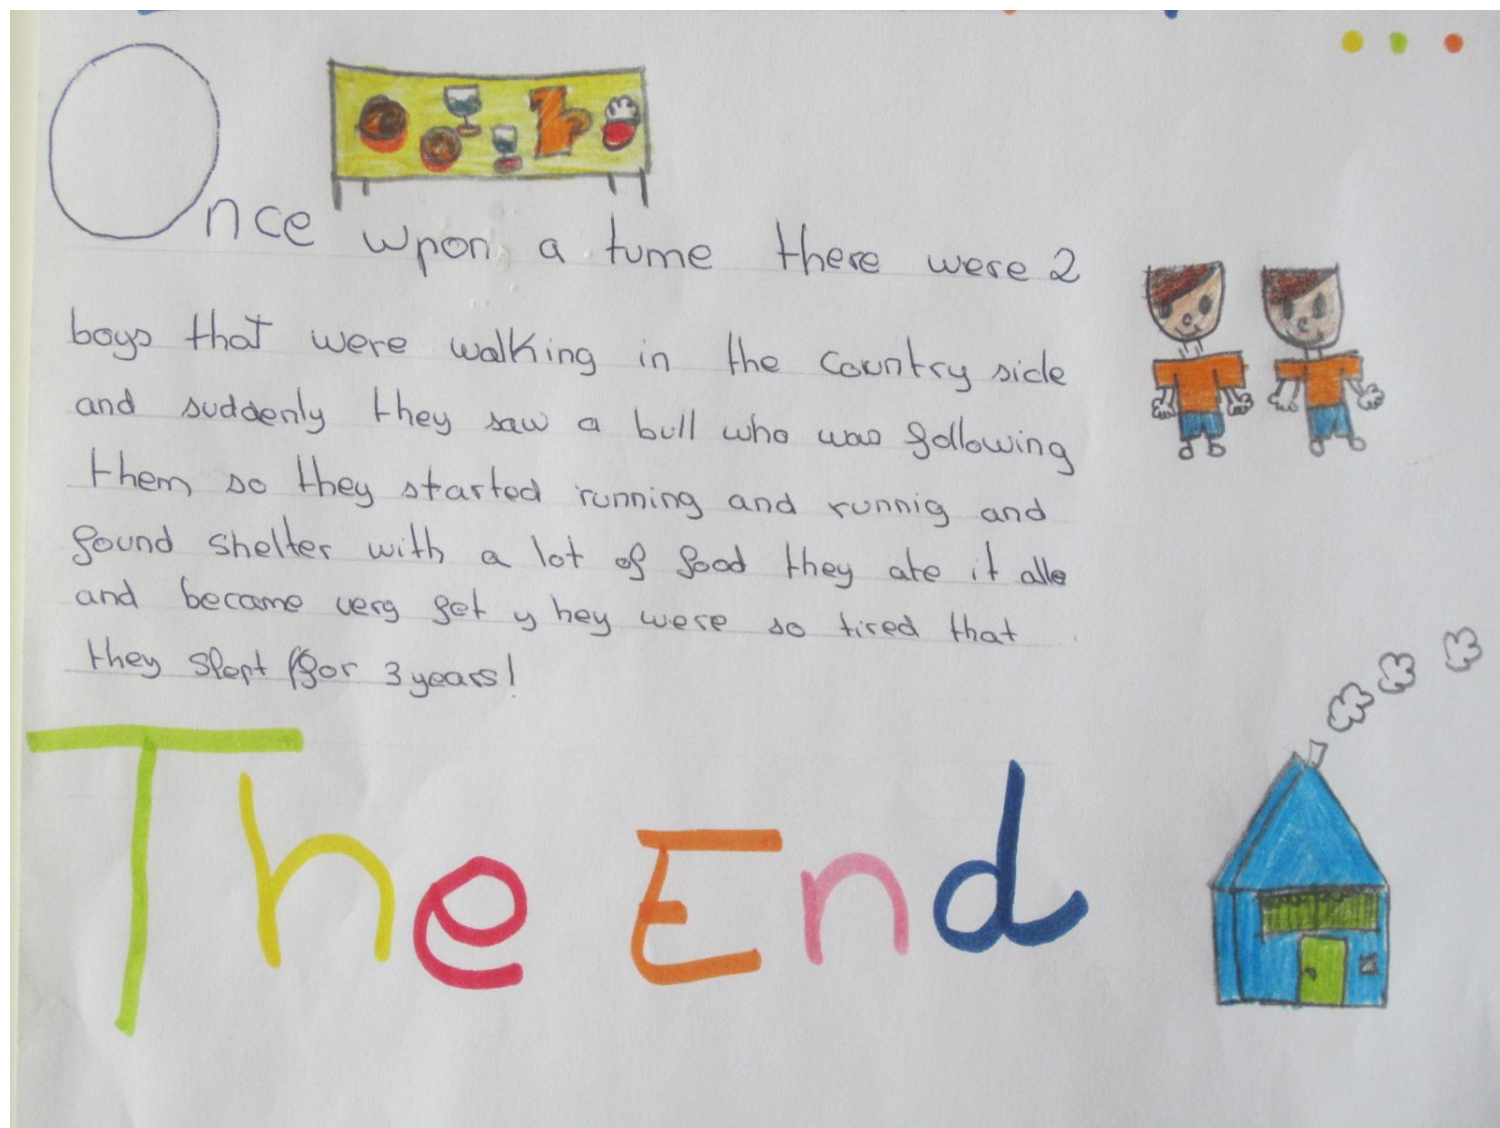 Once wpon a tume there were 2
boys that were walking in the country side
and suddenly they saw a bull who was following
them so they started running and runnig and
found shelter with a lot of food they ate it alle
and become very fet y hey were so tired that
they slept for 3 years!
The End